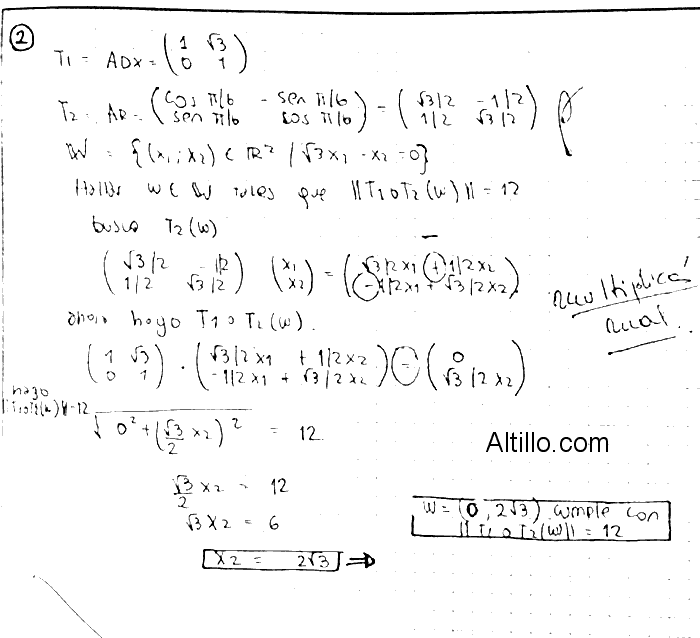 2
T1 = ADX = (1 √3
0 1)
T2 = AR = (cos π/6 - sen π/6
sen π/6 cos π/6) = (√3/2 -1/2
1/2 √3/2)
W = {(x1; x2) ∈ R² / √3x1 - x2 = 0}
Hallar w ∈ W tales que ||T1oT2(w)|| = 12
busco T2(w)
−
(√3/2 -1/2
1/2 √3/2) (x1
x2) = (√3/2x1 + 1/2x2
-1/2x1 + √3/2x2)
multiplicás
mal.
ahora hago T1oT2(w).
(1 √3
0 1) · (√3/2x1 + 1/2x2
-1/2x1 + √3/2x2) = (0
√3/2x2)
hago
||T1oT2(w)||=12
√0² + (√3/2 x2)² = 12
Altillo.com
√3/2 x2 = 12
√3x2 = 6
x2 = 2√3 ⇒
w = (0, 2√3) cumple con
||T1oT2(w)|| = 12